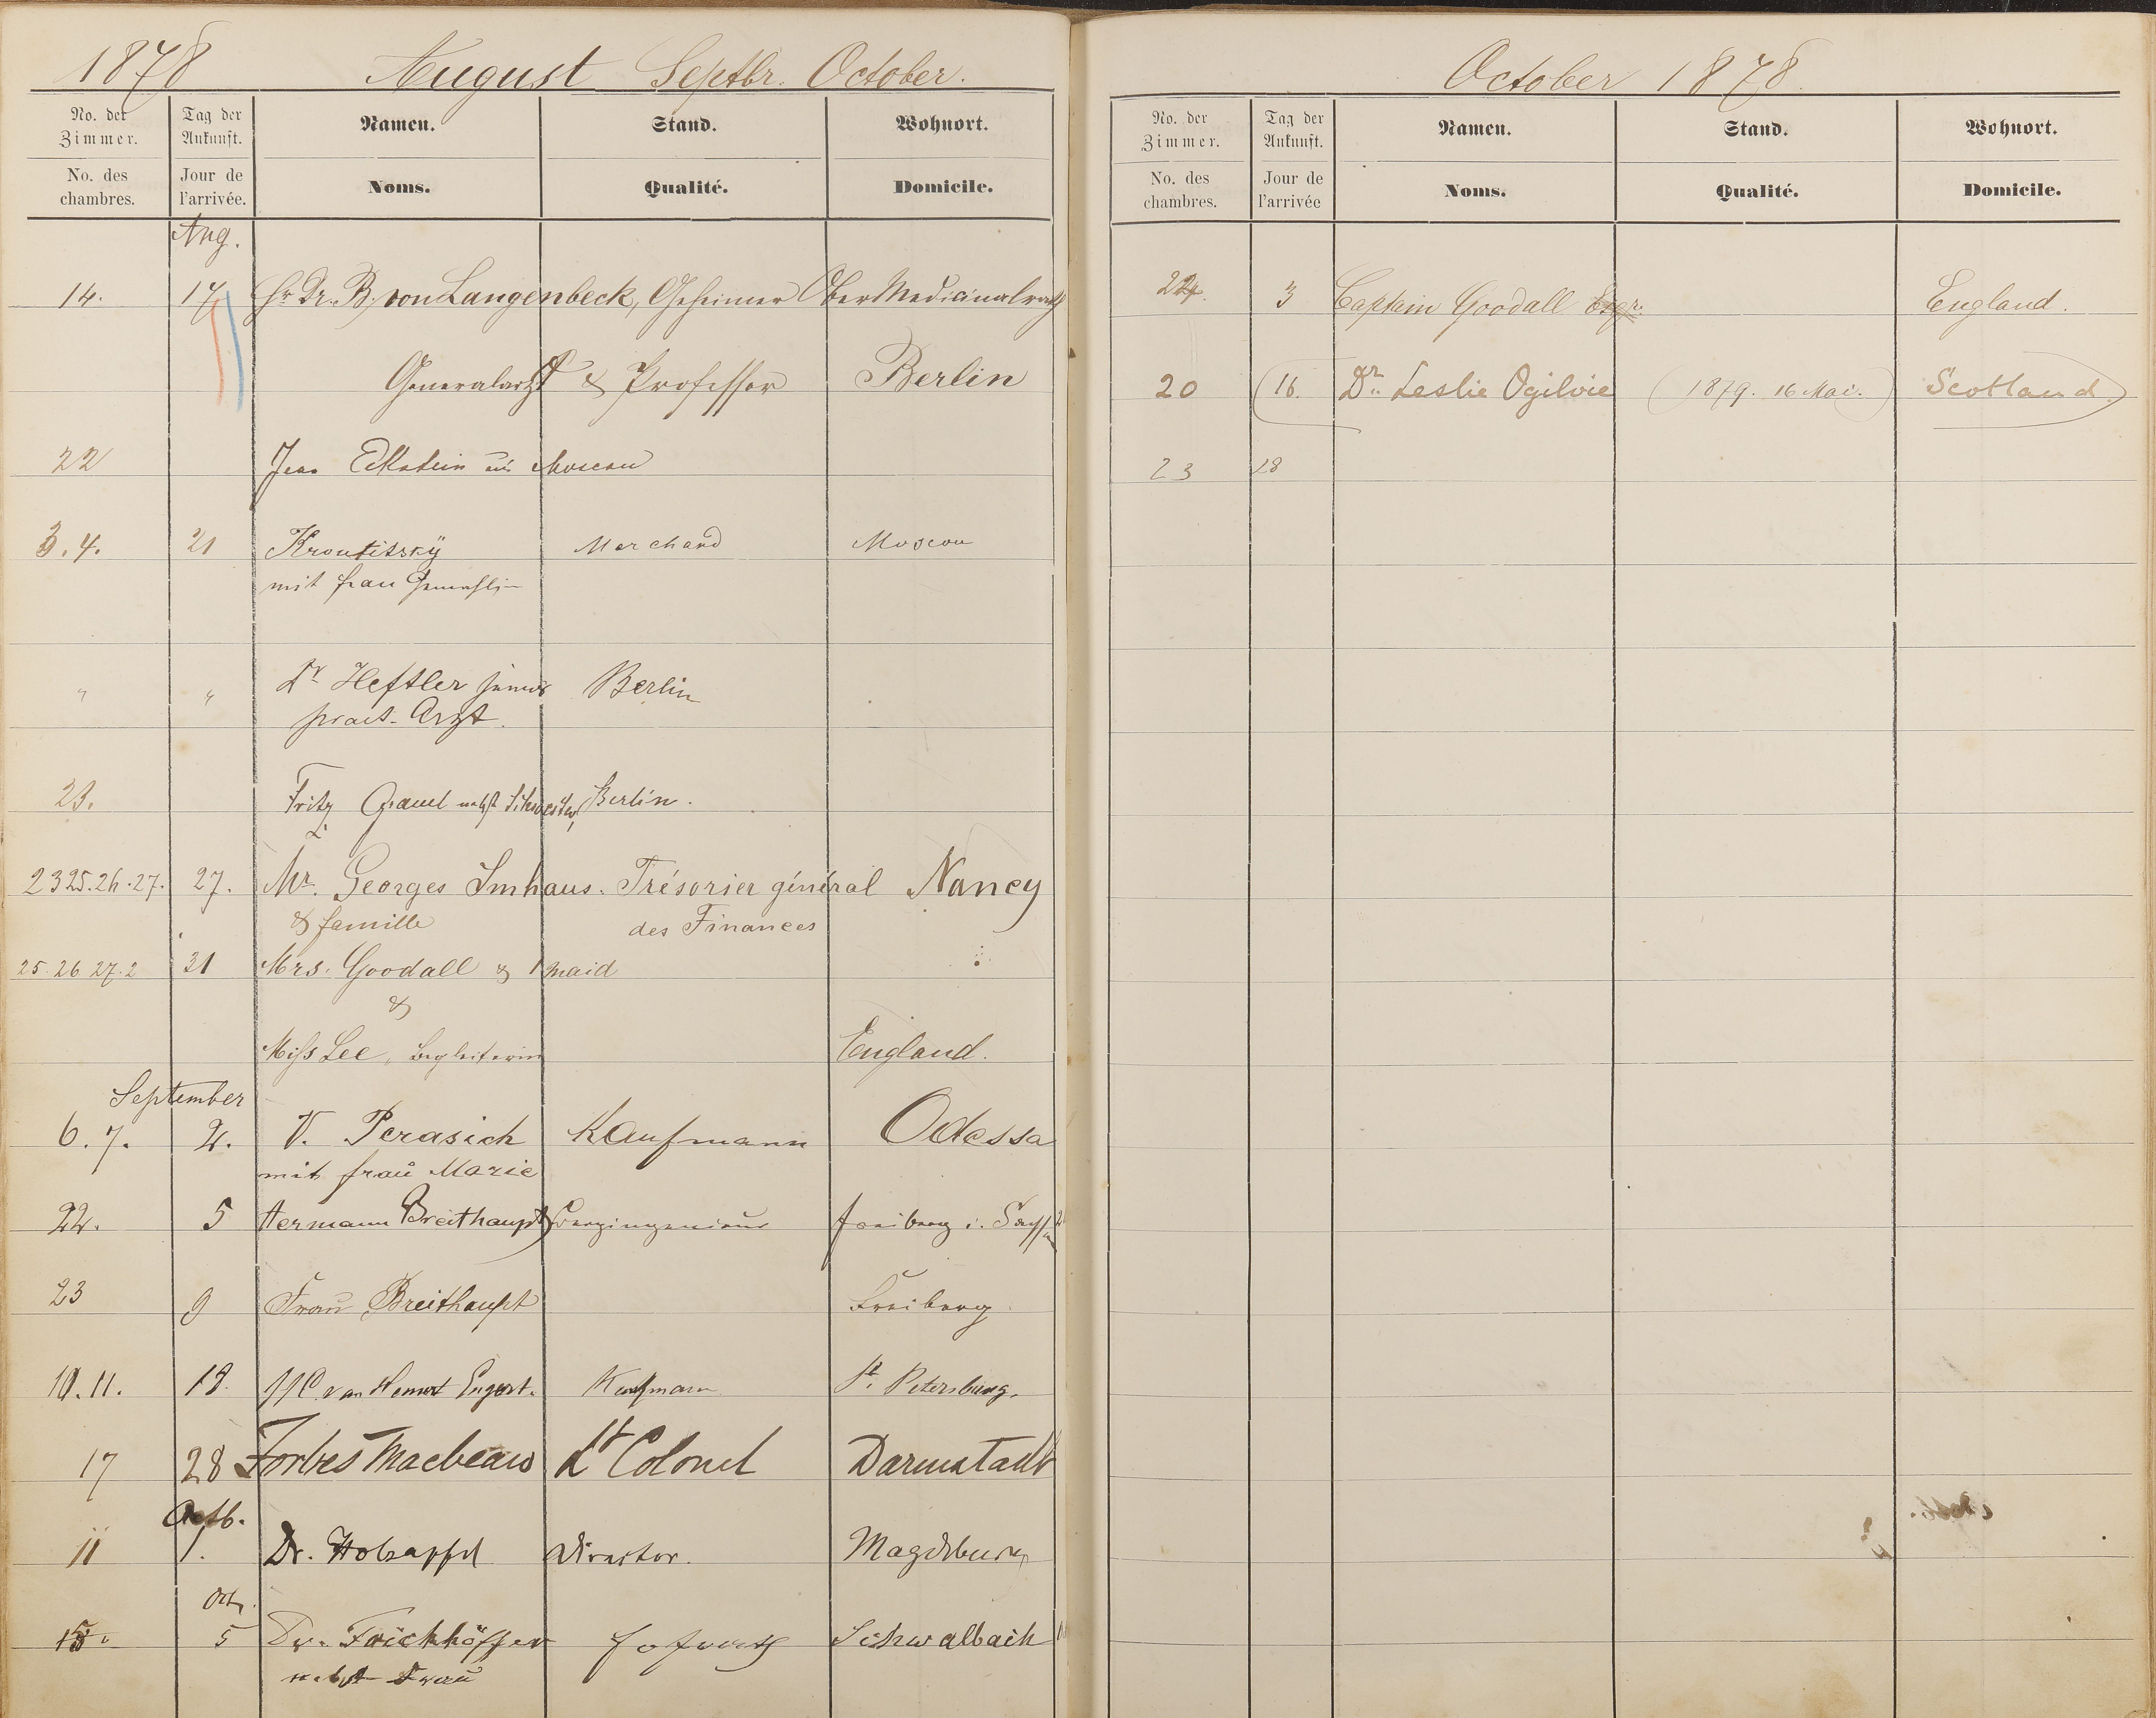 1878 August Septbr. October.
No. der Zimmer. Tag der Ankunft. Namen. Stand. Wohnort.
No. des chambres. Jour de l'arrivée. Noms. Qualité. Domicile.
Aug.
14. 17 Hr Dr. B. von Langenbeck, Geheimer Ober Medicinalrath
Generalarzt & Professor Berlin
22 Jean Eckstein aus Moscau
3. 4. 21 Kroutitsky Marchand Moscou
mit frau Gemahlin
" " Dr Heftler junior Berlin
pract. Arzt.
23. Fritz nebst Schwester, Berlin.
23 25. 26. 27. 27. Mr. Georges Imhaus. Trésorier général Nancy
& famille des Finances
25. 26 27. 2 31 Mrs. Goodall & 1 maid
&
Miss Lee, Begleiterin England.
September
6. 7. 2. V. Perasich Kaufmann Odessa
mit frau Marie
22. 5 Hermann Breithaupt Bergingenieur Freiberg i. Sachsen
23 9 Frau Breithaupt Freiberg
10. 11. van Hemert Kaufmann St. Petersburg.
17 28 Forbes Macbean Lt Colonel Darmstadt
Octb.
11 1. Dr. Holzapfel Director. Magdeburg
Oct.
5 Dr. Frickhöffer Hofrath Schwalbach
nebst Frau
October 1878.
No. der Zimmer. Tag der Ankunft. Namen. Stand. Wohnort.
No. des chambres. Jour de l'arrivée Noms. Qualité. Domicile.
3 Captain Goodall Esqr. England.
20 (16. Dr. Leslie Ogilvie (1879. 16 Mai.) Scotland.)
23 18